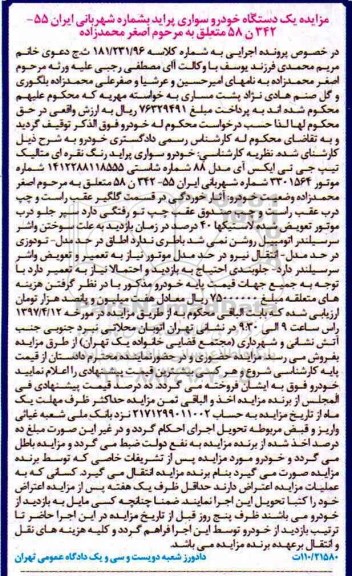 مزایده یک دستگاه خودرو سواری پراید بشماره شهربانی ایران ۵۵-
۳۴۲ ن ۵۸ متعلق به مرحوم اصغر محمدزاده
در خصوص پرونده اجرایی به شماره کلاسه ۱۸۱/۲۳۱/۹۶ ش ج دعوی خانم
مریم محمدی فرزند یوسف با وکالت آقای مصطفی رجبی علیه ورثه مرحوم
اصغر محمدزاده به نامهای امیرحسین و عرشیا و صفرعلی محمدزاده بلگوری
و گل صنم هادی نژاد پشت مساری به خواسته مهریه که محکوم علیهم
محکوم شده اند به پرداخت مبلغ ۷۶۳۲۹۴۹۱ ریال به ارزش واقعی در حق
محکوم لها لذا حسب درخواست محکوم له خودرو فوق الذکر توقیف گردید
و به تقاضای محکوم له کارشناس رسمی دادگستری خودرو به شرح ذیل
کارشناسی شده. نظریه کارشناسی: خودرو سواری پراید رنگ نقره ای متالیک
تیپ جی تی ایکس آی مدل ۸۸ شماره شاسی ۱۴۱۲۲۸۸۱۱۸۵۵۵ شماره
موتور ۳۳۰۱۵۶۴ شماره شهربانی ایران ۵۵- ۳۴۲ ن ۵۸ متعلق به مرحوم اصغر
محمدزاده وضعیت خودرو: آثار خوردگی در قسمت گلگیر عقب راست و چپ
درب عقب راست و چپ صندوق عقب چپ تو رفتگی دارد سپر جلو درب
موتور تعویض شده لاستیکها ۴۰ درصد در زمان بازدید به علت سوختن واشر
سرسیلندر اتومبیل روشن نمی شد باطری ندارد اطاق در حد مدل- تودوزی
در حد مدل- انتقال نیرو در حد مدل موتور نیاز به تعمیر و تعویض واشر
سرسیلندر دارد- جلوبندی احتیاج به بازدید و احتمالا نیاز به تعمیر دارد با
توجه به جمیع جهات قیمت پایه خودرو مذکور با در نظر گرفتن هزینه
های متعلقه مبلغ ۷۵۰۰۰۰۰۰ ریال معادل هفت میلیون و پانصد هزار تومان
ارزیابی شده که بابت الباقی محکوم به از طریق مزایده در مورخه ۱۳۹۷/۴/۱۲
راس ساعت ۹ الی ۹:۳۰ در نشانی تهران اتوبان محلاتی نبرد جنوبی جنب
آتش نشانی و شهرداری (مجتمع قضایی خانواده یک تهران) از طرق مزایده
بفروش می رسد. مزایده حضوری و در حضور نماینده محترم دادستان از قیمت
پایه کارشناسی شروع و هر کس بالاترین قیمت پیشنهادی را اعلام نمایید
خودرو فوق به ایشان فروخته می شود. ده درصد قیمت پیشنهادی فی
المجلس از برنده مزایده اخذ و الباقی ثمن مزایده حداکثر ظرف مهلت یک
ماه از تاریخ مزایده به حساب ۲۱۷۱۲۹۹۰۱۱۰۰۲ نزد بانک ملی شعبه غیاثی
واریز و قبض مربوطه تحویل اجرای احکام گردد و در غیر این صورت مبلغ ده
درصد اخذ شده از برنده مزایده به نفع دولت ضبط می گردد و مزایده باطل
می گردد و خودرو مورد مزایده پس از تشریفات خاصی که توسط برنده
مزایده صورت می گیرد بنام برنده مزایده انتقال می گیرد. کسانی که به
عملیات مزایده اعتراض دارند حداقل ظرف یک هفته پس از مزایده اعتراض
خود را کتبا تحویل این اجرا نمایند. ضمنا چنانچه کسی مایل به بازدید از
خودرو می باشند ظرف پنج روز قبل از تاریخ مزایده در این اجرا حاضر تا
ترتیب بازدید از خودرو توسط این اجرا فراهم گردد و کلیه هزینه های نقل
و انتقال برعهده برنده مزایده می باشد.
۱۱۰/۲۱۵۸۰ت دادورز شعبه دویست و سی و یک دادگاه عمومی تهران